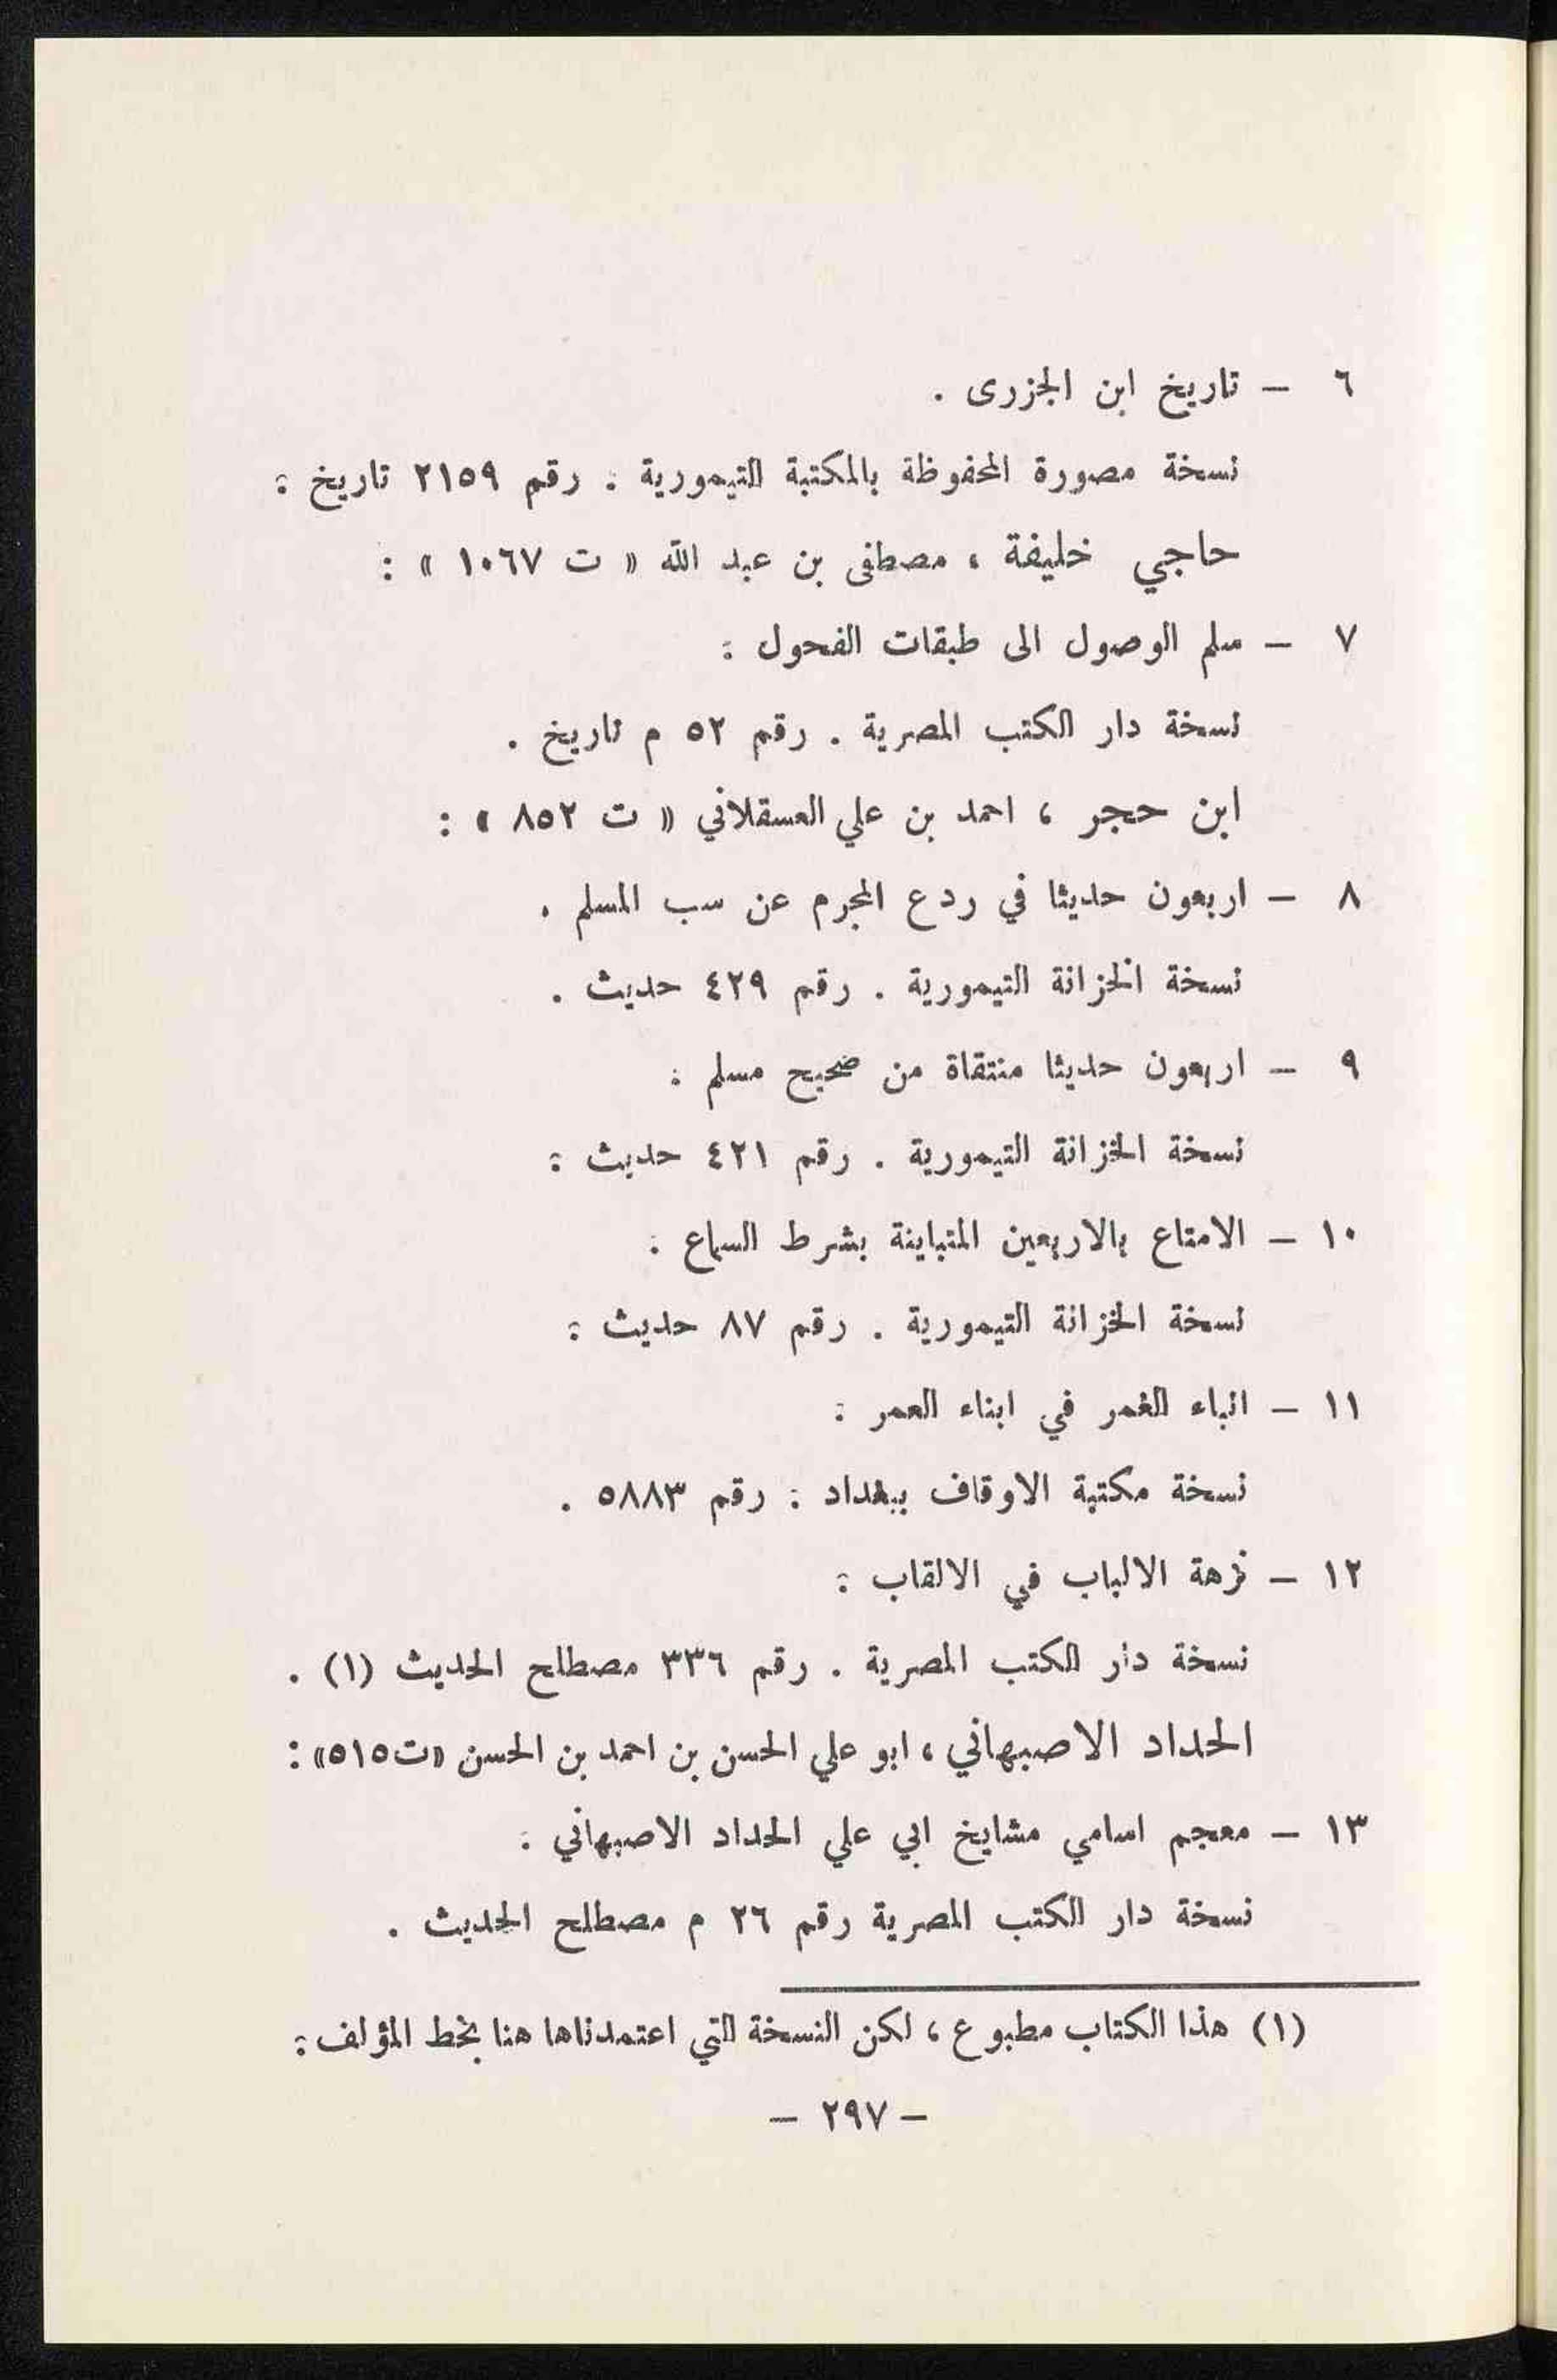 ٦ – تاريخ ابن الجزرى .
نسخة مصورة المحفوظة بالمكتبة التيمورية . رقم ٢١٥٩ تاريخ .
حاجي خليفة ، مصطفى بن عبد الله « ت ١٠٦٧ » :
٧ – سلم الوصول الى طبقات الفحول .
نسخة دار الكتب المصرية . رقم ٥٢ م تاريخ .
ابن حجر ، احمد بن علي العسقلاني « ت ٨٥٢ » :
٨ – اربعون حديثا في ردع المجرم عن سب المسلم .
نسخة الخزانة التيمورية . رقم ٤٢٩ حديث .
٩ – اربعون حديثا منتقاة من صحيح مسلم .
نسخة الخزانة التيمورية . رقم ٤٢١ حديث .
١٠ – الامتاع بالاربعين المتباينة بشرط السماع .
نسخة الخزانة التيمورية . رقم ٨٧ حديث .
١١ – انباء الغمر في ابناء العمر .
نسخة مكتبة الاوقاف ببغداد . رقم ٥٨٨٣ .
١٢ – نزهة الالباب في الالقاب .
نسخة دار الكتب المصرية . رقم ٣٣٦ مصطلح الحديث (١) .
الحداد الاصبهاني ، ابو علي الحسن بن احمد بن الحسن «ت٥١٥» :
١٣ – معجم اسامي مشايخ ابي علي الحداد الاصبهاني .
نسخة دار الكتب المصرية رقم ٢٦ م مصطلح الحديث .
(١) هذا الكتاب مطبوع ، لكن النسخة التي اعتمدناها هنا بخط المؤلف .
– ٢٩٧ –